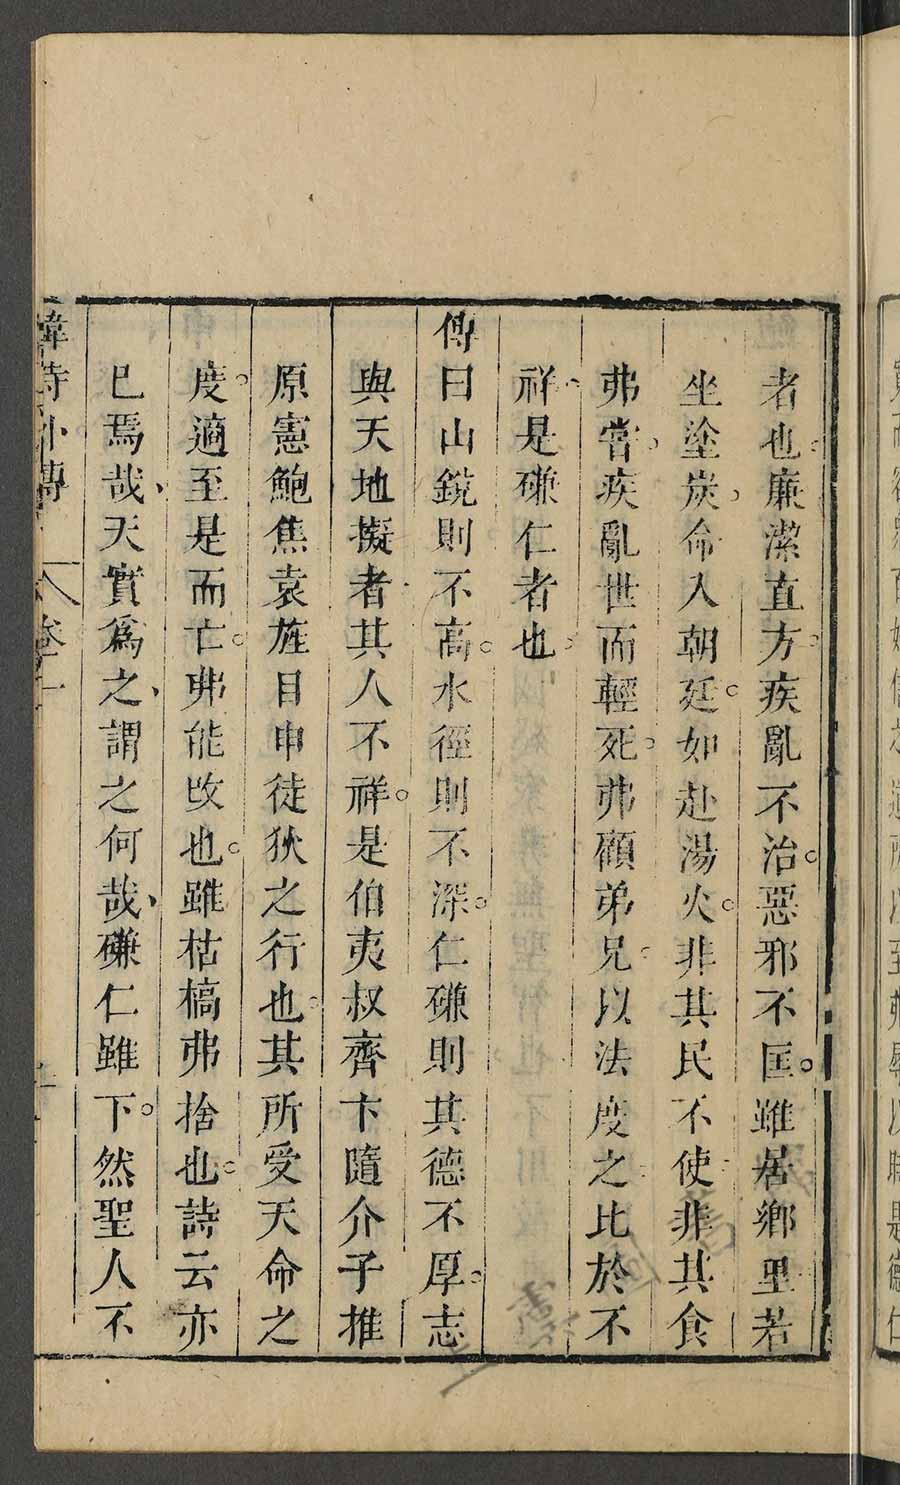 者也廉潔直方疾亂不治惡邪不匡雖居鄉里若
坐塗炭命入朝廷如赴湯火非其民不使非其食
弗嘗疾亂世而輕死弗顧弟兄以法度之比於不
祥是磏仁者也
傳曰山銳則不高水徑則不深仁磏則其德不厚志
與天地擬者其人不祥是伯夷叔齊卞隨介子推
原憲鮑焦袁旌目申徒狄之行也其所受天命之
度適至是而亡弗能改也雖枯槁弗捨也詩云亦
已焉哉天實為之謂之何哉磏仁雖下然聖人不
韓詩外傳 卷一